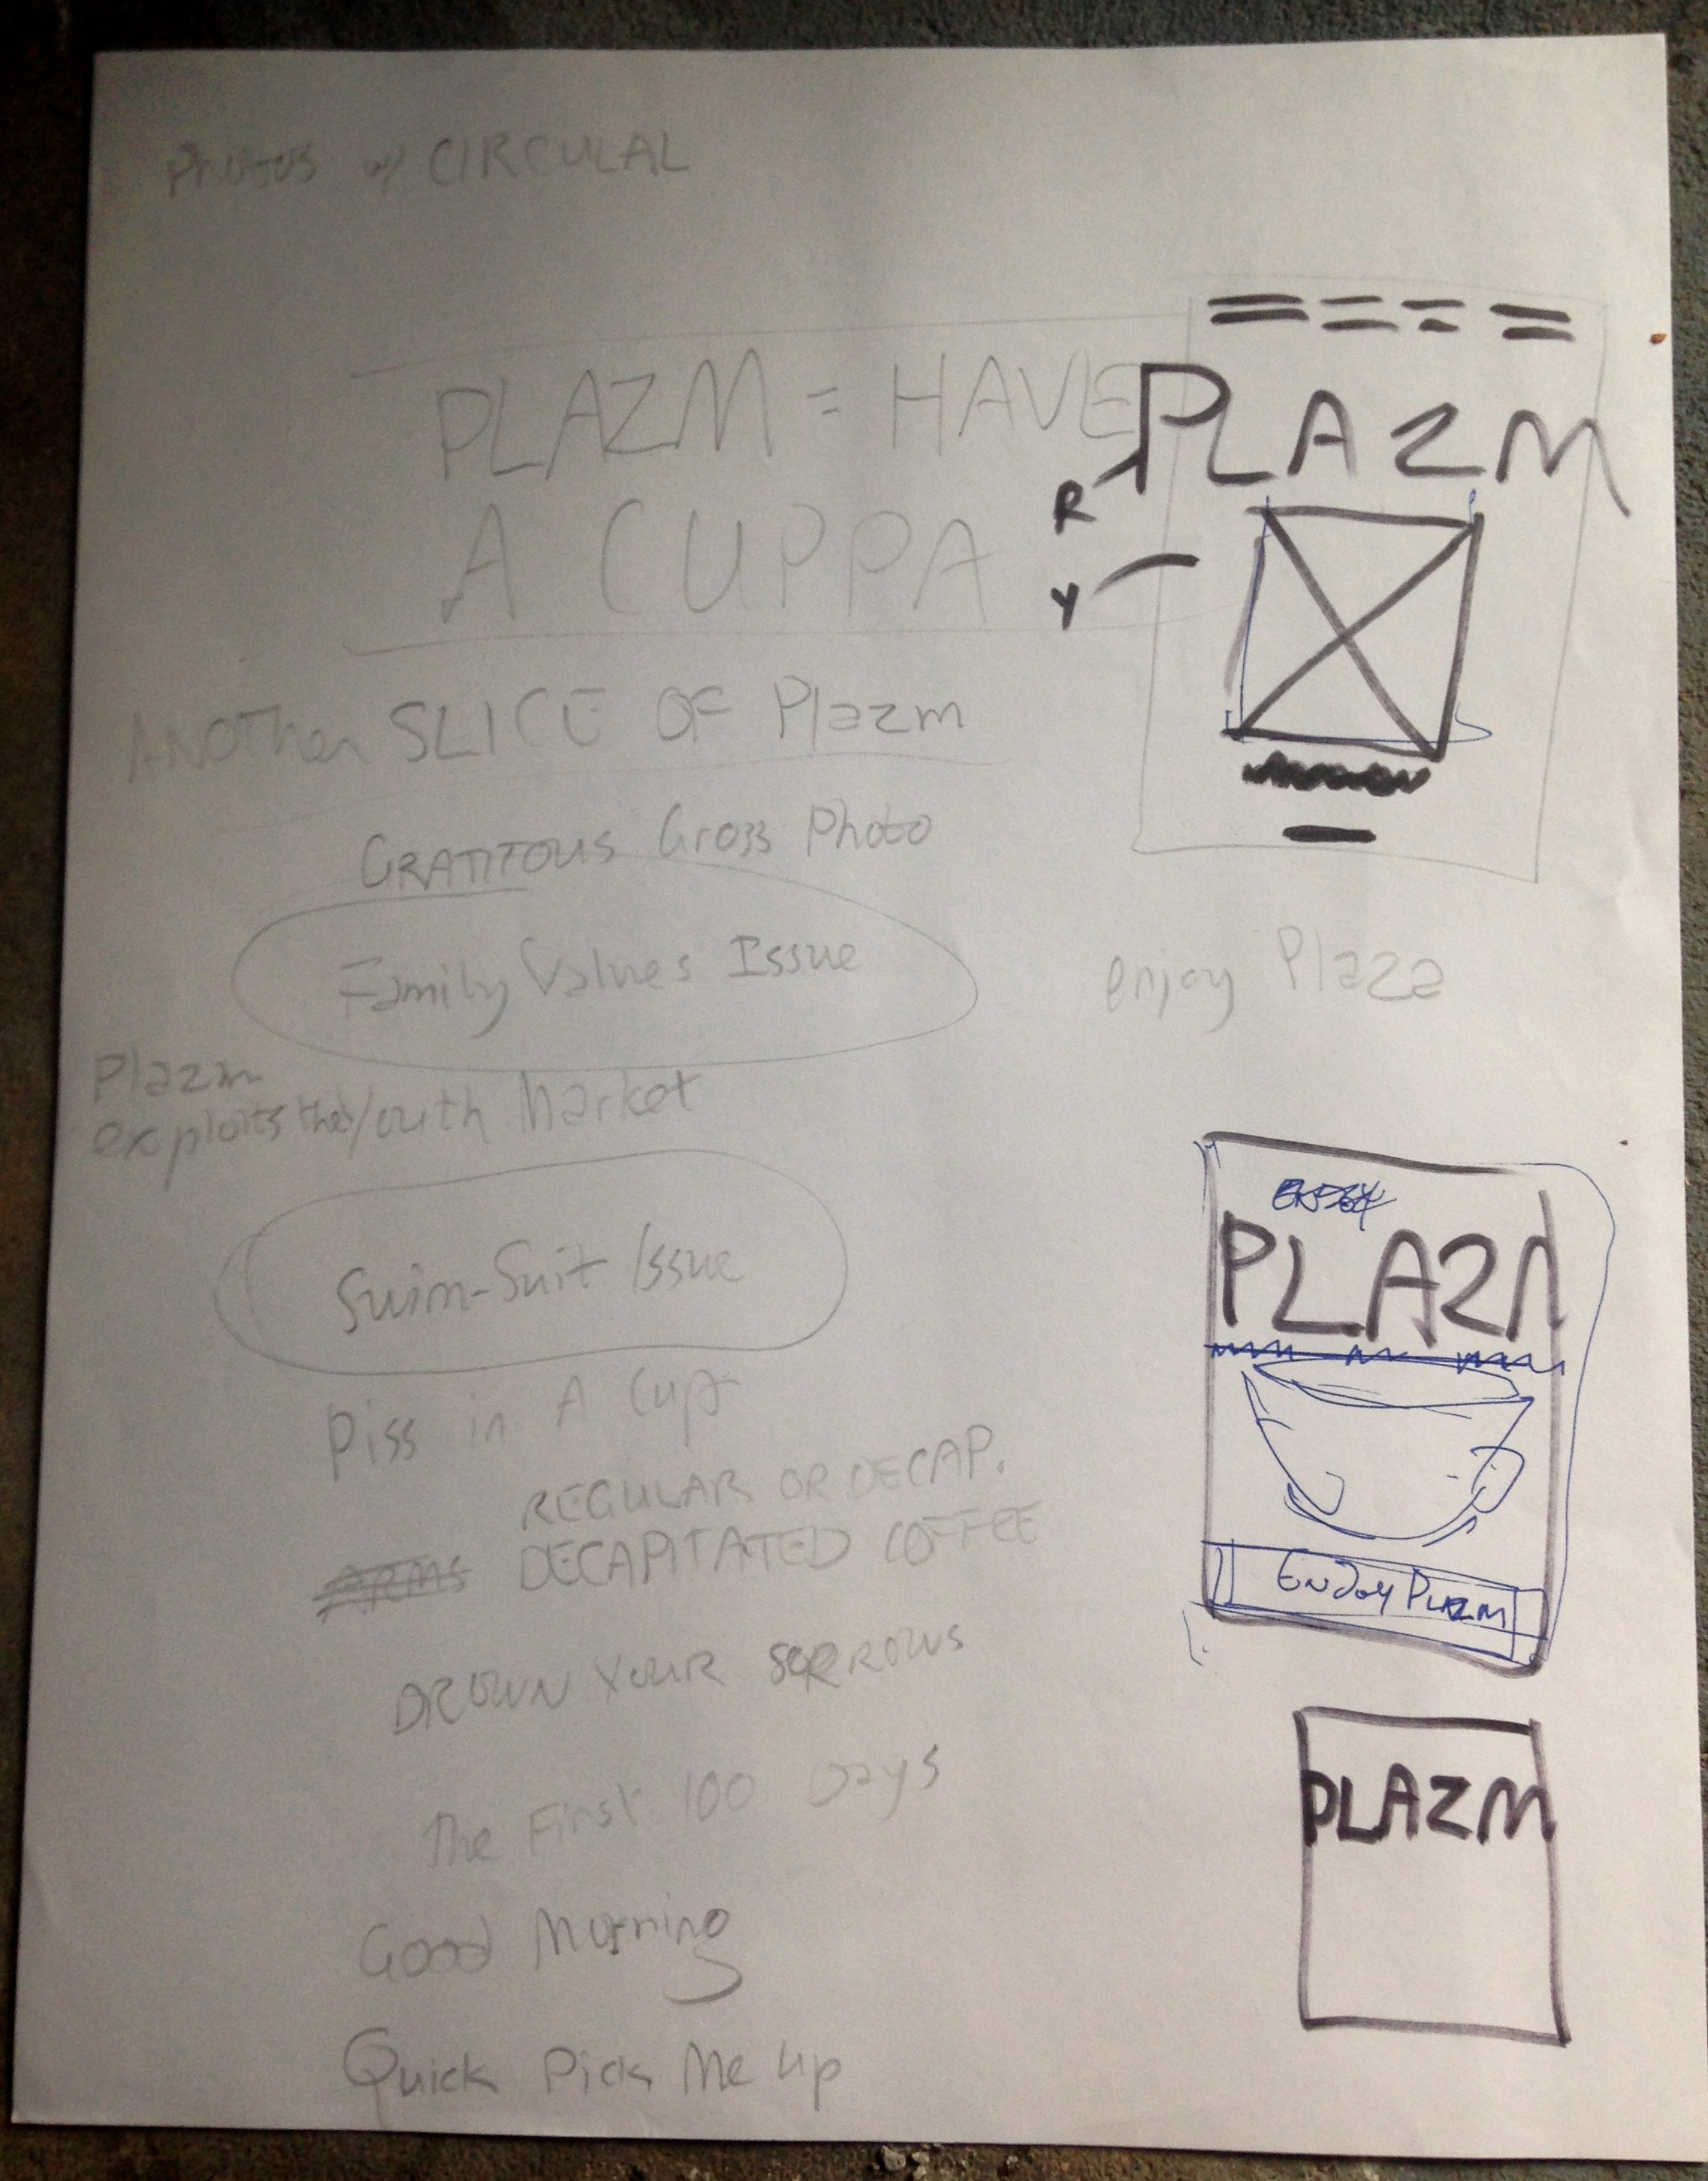 Photos w/ CIRCULAL
PLAZM = HAVE
A CUPPA
ANOTher SLICE OF Plazm
GRATITOUS Gross Photo
Family Values Issue
Plazm
exploits the Youth Market
Swim-Suit Issue
Piss in A Cup
REGULAR OR DECAP.
ARMS DECAPITATED COFFEE
DROWN YOUR SORROWS
The First 100 Days
Good Morning
Quick Pick Me Up
PLAZM
R
Y
enjoy Plaza
ENJOY
PLAZM
ENJOY PLAZM
PLAZM